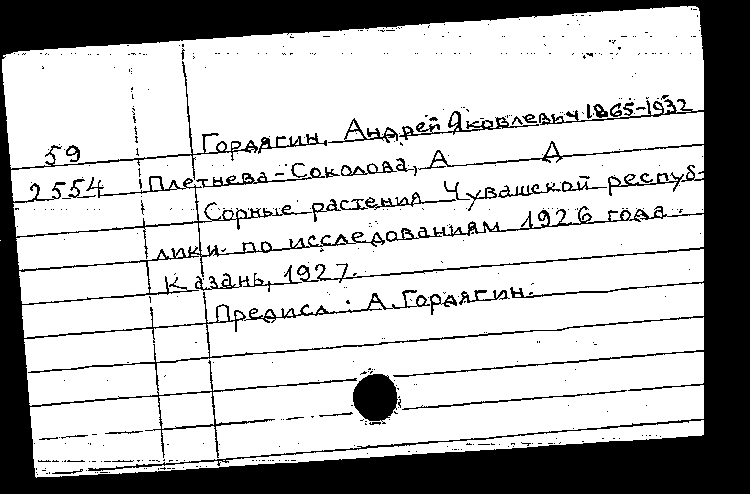 Гордягин, Андрей Яковлевич 1865-1932
59
Плетнева-Соколова, А Д
2554
Сорные растения Чувашской респуб-
лики по исследованиям 1926 года.
Казань, 1927.
Предисл: А. Гордягин.